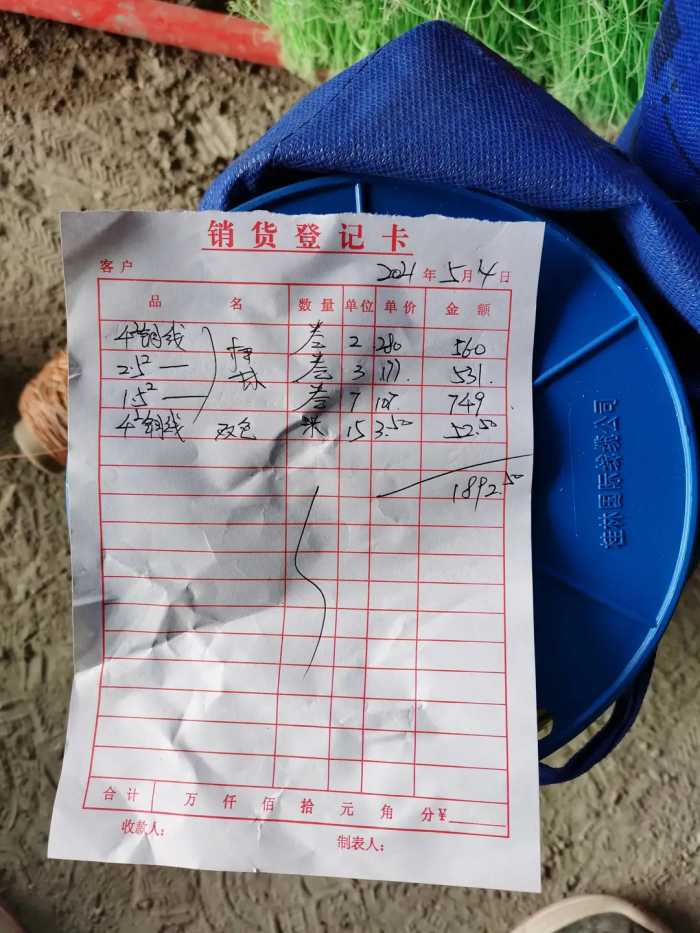 销货登记卡
客户 2021年5月4日
品名 数量 单位 单价 金额
4²铜线 卷 2 280 560
2.5² — 卷 3 177. 531.
1.5² — 卷 7 107. 749
4²铜线 双色 米 15 3.50 52.50
1892.50
合计 万 仟 佰 拾 元 角 分¥
收款人: 制表人:
桂林国际线缆公司